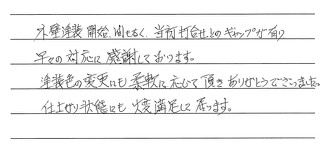 外壁塗装開始、間もなく、当初打合せとのギャップが有り
早々の対応に感謝しております。
塗装色の変更にも柔軟に応じて頂きありがとうございました。
仕上がり状態にも大変満足して居ります。